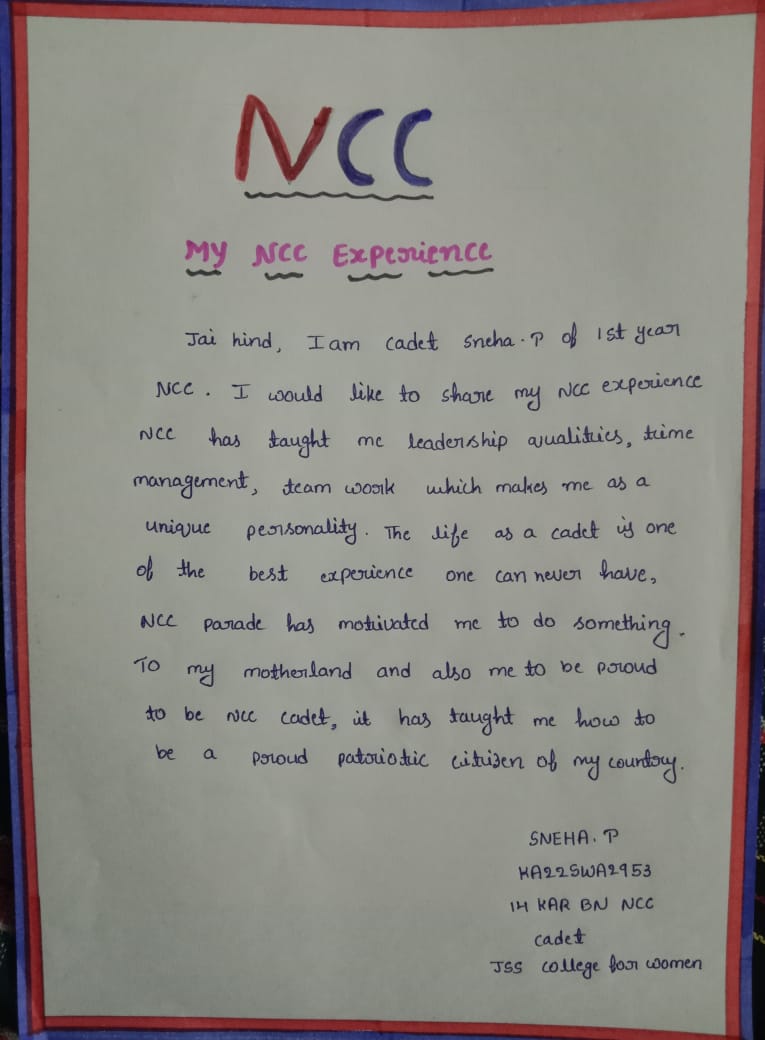 NCC
My NCC Experience
Jai hind, I am cadet Sneha.P of 1st year
NCC. I would like to share my NCC experience
NCC has taught me leadership qualities, time
management, team work which makes me as a
unique personality. The life as a cadet is one
of the best experience one can never have,
NCC parade has motivated me to do something.
To my motherland and also me to be proud
to be NCC cadet, it has taught me how to
be a proud patriotic citizen of my country.
SNEHA. P
KA22SWA2953
14 KAR BN NCC
cadet
JSS college for women